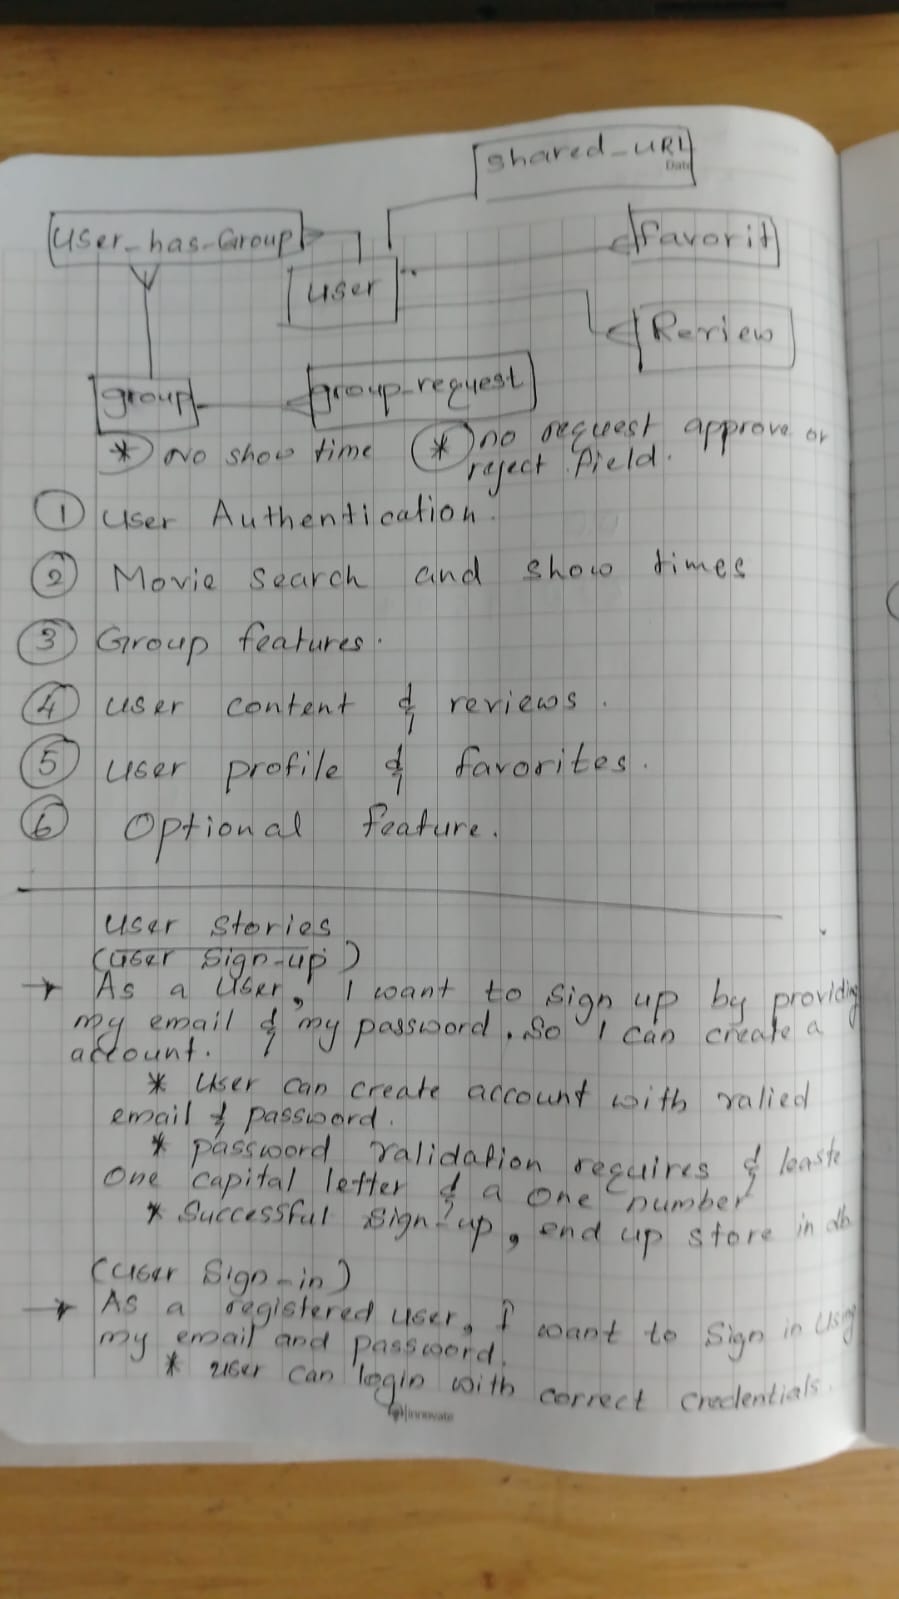 shared_URL
Date
User_has_Group
favorit
user
Review
group
group_request
* No show time
* no request approve or
reject field.
1 User Authentication.
2 Movie search and show times
3 Group features.
4 user content & reviews.
5 user profile & favorites.
6 Optional feature.
User Stories
(User Sign-up)
→ As a User, I want to Sign up by providing
my email & my password. So I can create a
account.
* User can create account with valied
email & password.
* password validation requires & leaste
one capital letter & a one number
* Successful sign-up, end up store in db
(User Sign-in)
→ As a registered user, I want to Sign in Using
my email and password.
* user can login with correct credentials.
innovate